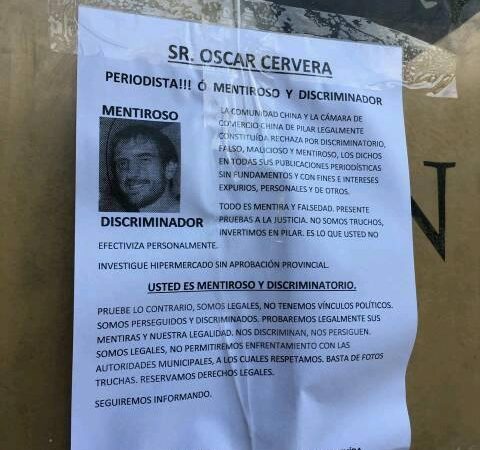 SR. OSCAR CERVERA
PERIODISTA!!! Ó MENTIROSO Y DISCRIMINADOR
MENTIROSO
LA COMUNIDAD CHINA Y LA CÁMARA DE
COMERCIO CHINA DE PILAR LEGALMENTE
CONSTITUÍDA RECHAZA POR DISCRIMINATORIO,
FALSO, MALICIOSO Y MENTIROSO, LOS DICHOS
EN TODAS SUS PUBLICACIONES PERIODÍSTICAS
SIN FUNDAMENTOS Y CON FINES E INTERESES
EXPURIOS, PERSONALES Y DE OTROS.
TODO ES MENTIRA Y FALSEDAD. PRESENTE
PRUEBAS A LA JUSTICIA. NO SOMOS TRUCHOS,
DISCRIMINADOR
INVERTIMOS EN PILAR. ES LO QUE USTED NO
EFECTIVIZA PERSONALMENTE.
INVESTIGUE HIPERMERCADO SIN APROBACIÓN PROVINCIAL.
USTED ES MENTIROSO Y DISCRIMINATORIO.
PRUEBE LO CONTRARIO, SOMOS LEGALES, NO TENEMOS VÍNCULOS POLÍTICOS.
SOMOS PERSEGUIDOS Y DISCRIMINADOS. PROBAREMOS LEGALMENTE SUS
MENTIRAS Y NUESTRA LEGALIDAD. NOS DISCRIMINAN, NOS PERSIGUEN.
SOMOS LEGALES, NO PERMITIREMOS ENFRENTAMIENTO CON LAS
AUTORIDADES MUNICIPALES, A LOS CUALES RESPETAMOS. BASTA DE FOTOS
TRUCHAS. RESERVAMOS DERECHOS LEGALES.
SEGUIREMOS INFORMANDO.
N